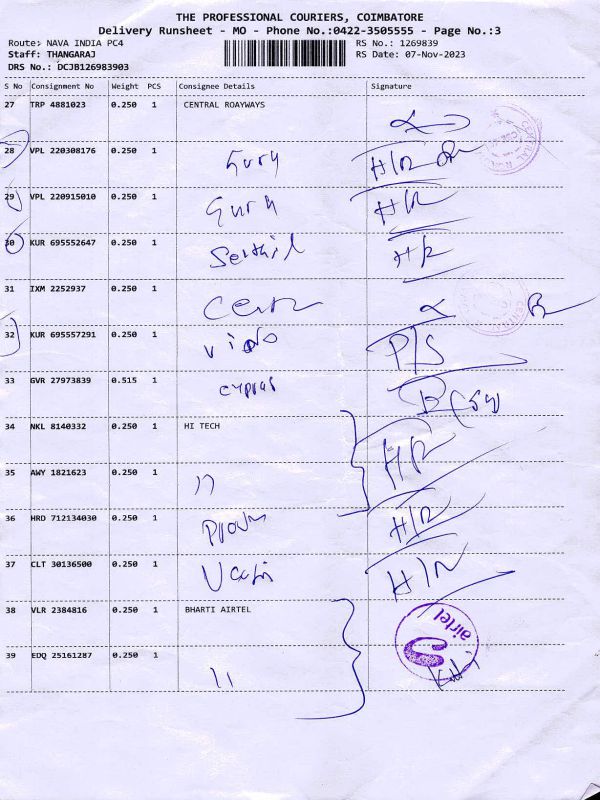 THE PROFESSIONAL COURIERS, COIMBATORE
Delivery Runsheet - MO - Phone No.:0422-3505555 - Page No.:3
Route: NAVA INDIA PC4 RS No.: 1269839
Staff: THANGARAJ RS Date: 07-Nov-2023
DRS No.: DCJB126983903
S No Consignment No Weight PCS Consignee Details Signature
27 TRP 4881023 0.250 1 CENTRAL ROAYWAYS
28 VPL 220308176 0.250 1 Guru H/R
29 VPL 220915010 0.250 1 Guru H/R
30 KUR 695552647 0.250 1 Senthil H/R
31 IXM 2252937 0.250 1
32 KUR 695557291 0.250 1 P/S
33 GVR 27973839 0.515 1 Cyprus
34 NKL 8140332 0.250 1 HI TECH H/R
35 AWY 1821623 0.250 1 "
36 HRD 712134030 0.250 1 H/R
37 CLT 30136500 0.250 1 H/R
38 VLR 2384816 0.250 1 BHARTI AIRTEL airtel
39 EDQ 25161287 0.250 1 "